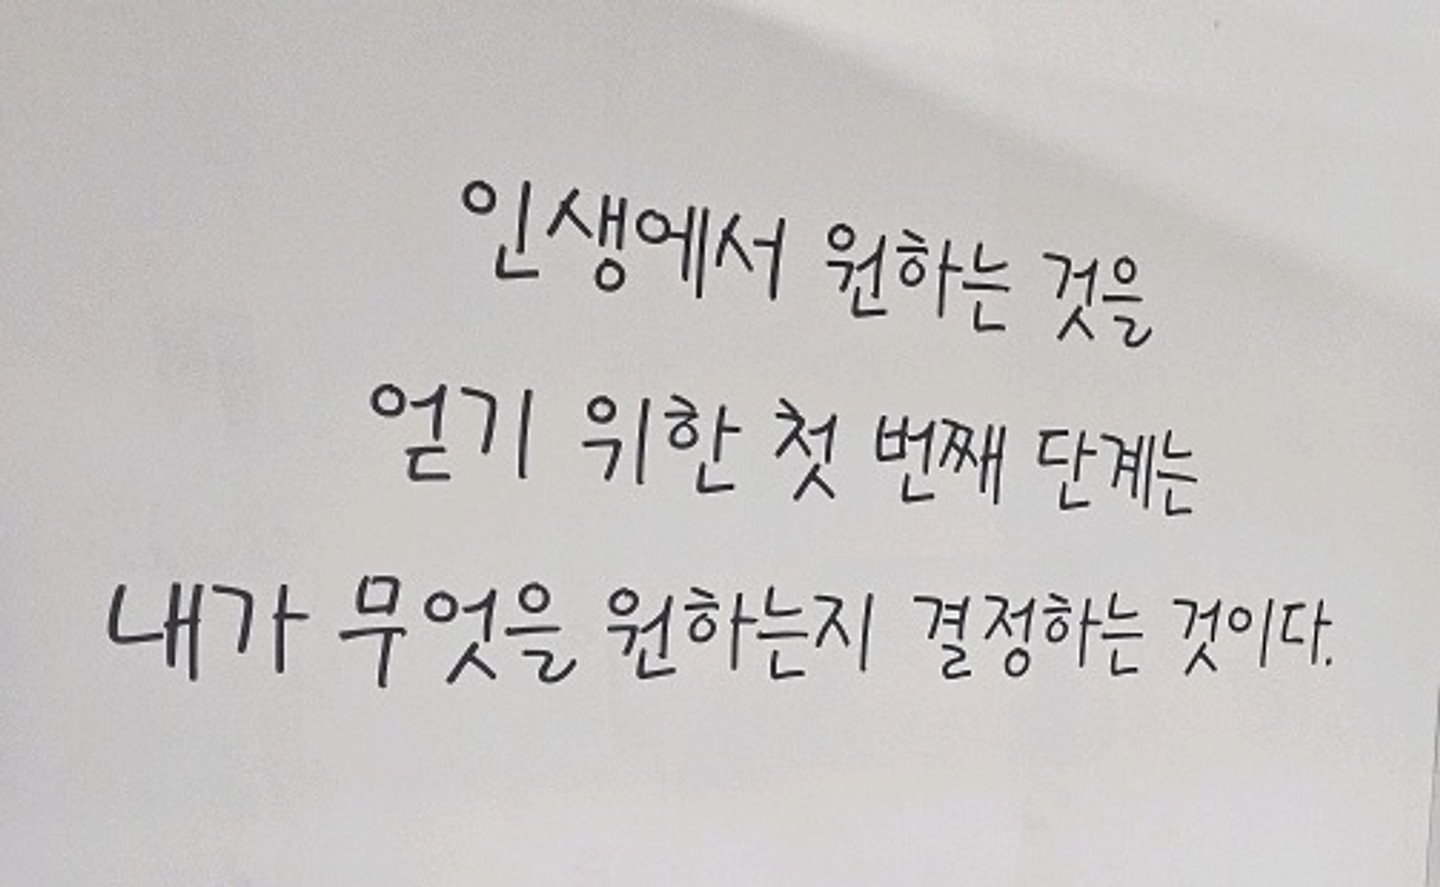 인생에서 원하는 것을
얻기 위한 첫 번째 단계는
내가 무엇을 원하는지 결정하는 것이다.